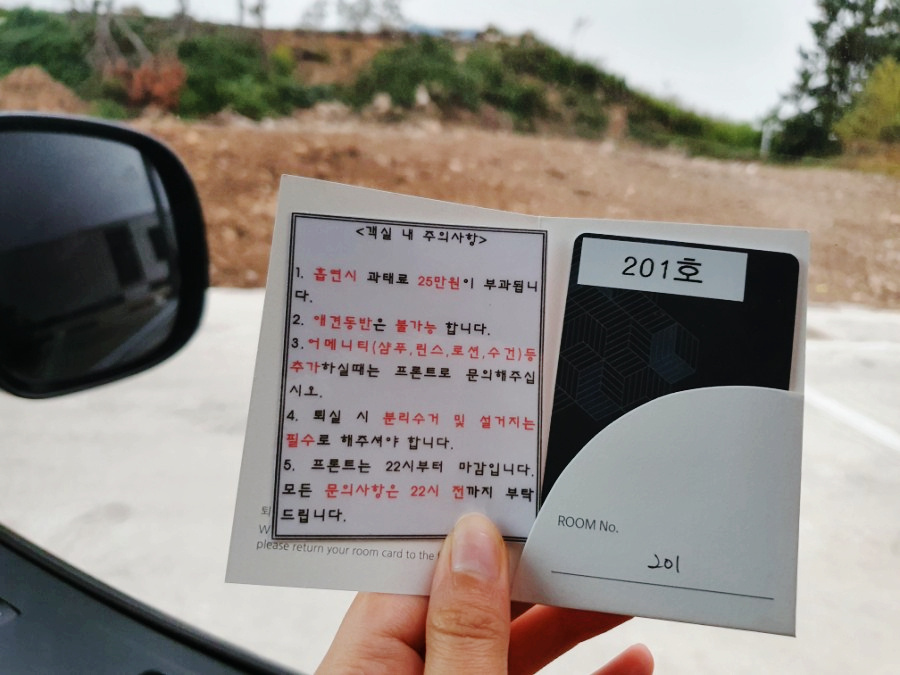 <객실 내 주의사항>
1. 흡연시 과태료 25만원이 부과됩니
다.
2. 애견동반은 불가능 합니다.
3.어메니티(샴푸,린스,로션,수건)등
추가하실때는 프론트로 문의해주십
시오.
4. 퇴실 시 분리수거 및 설거지는
필수로 해주셔야 합니다.
5. 프론트는 22시부터 마감입니다.
모든 문의사항은 22시 전까지 부탁
드립니다.
please return your room card to the
201호
ROOM No.
201